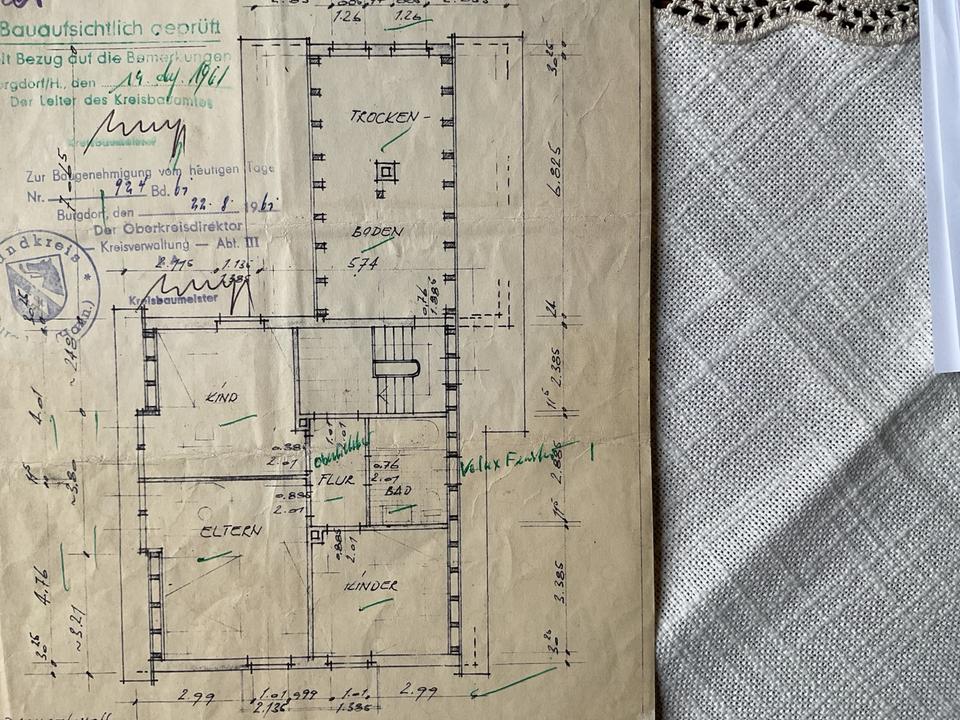 Bauaufsichtlich geprüft
mit Bezug auf die Bemerkungen
Burgdorf/H., den 14. 1961
Der Leiter des Kreisbauamtes
Kreisbaumeister
Zur Baugenehmigung vom heutigen Tage
Nr. 924 Bd. 61
Burgdorf, den 22. 8. 1961
Der Oberkreisdirektor
— Kreisverwaltung — Abt. III
Kreisbaumeister
Landkreis
1.26 1.26
TROCKEN-
BODEN
574
6.825
0.76
1.885
26
2.385
11⁵
2.885
11⁵
3.385
30
KIND
0.885
2.01
Oberlichter
1.01
2.01
FLUR
0.76
2.01
BAD
Velux Fenster
ELTERN
0.885
2.01
0.885
2.01
KINDER
4.01
~3.80
4.76
~3.21
2.99 1.01 999 1.01 2.99
2.136 1.385